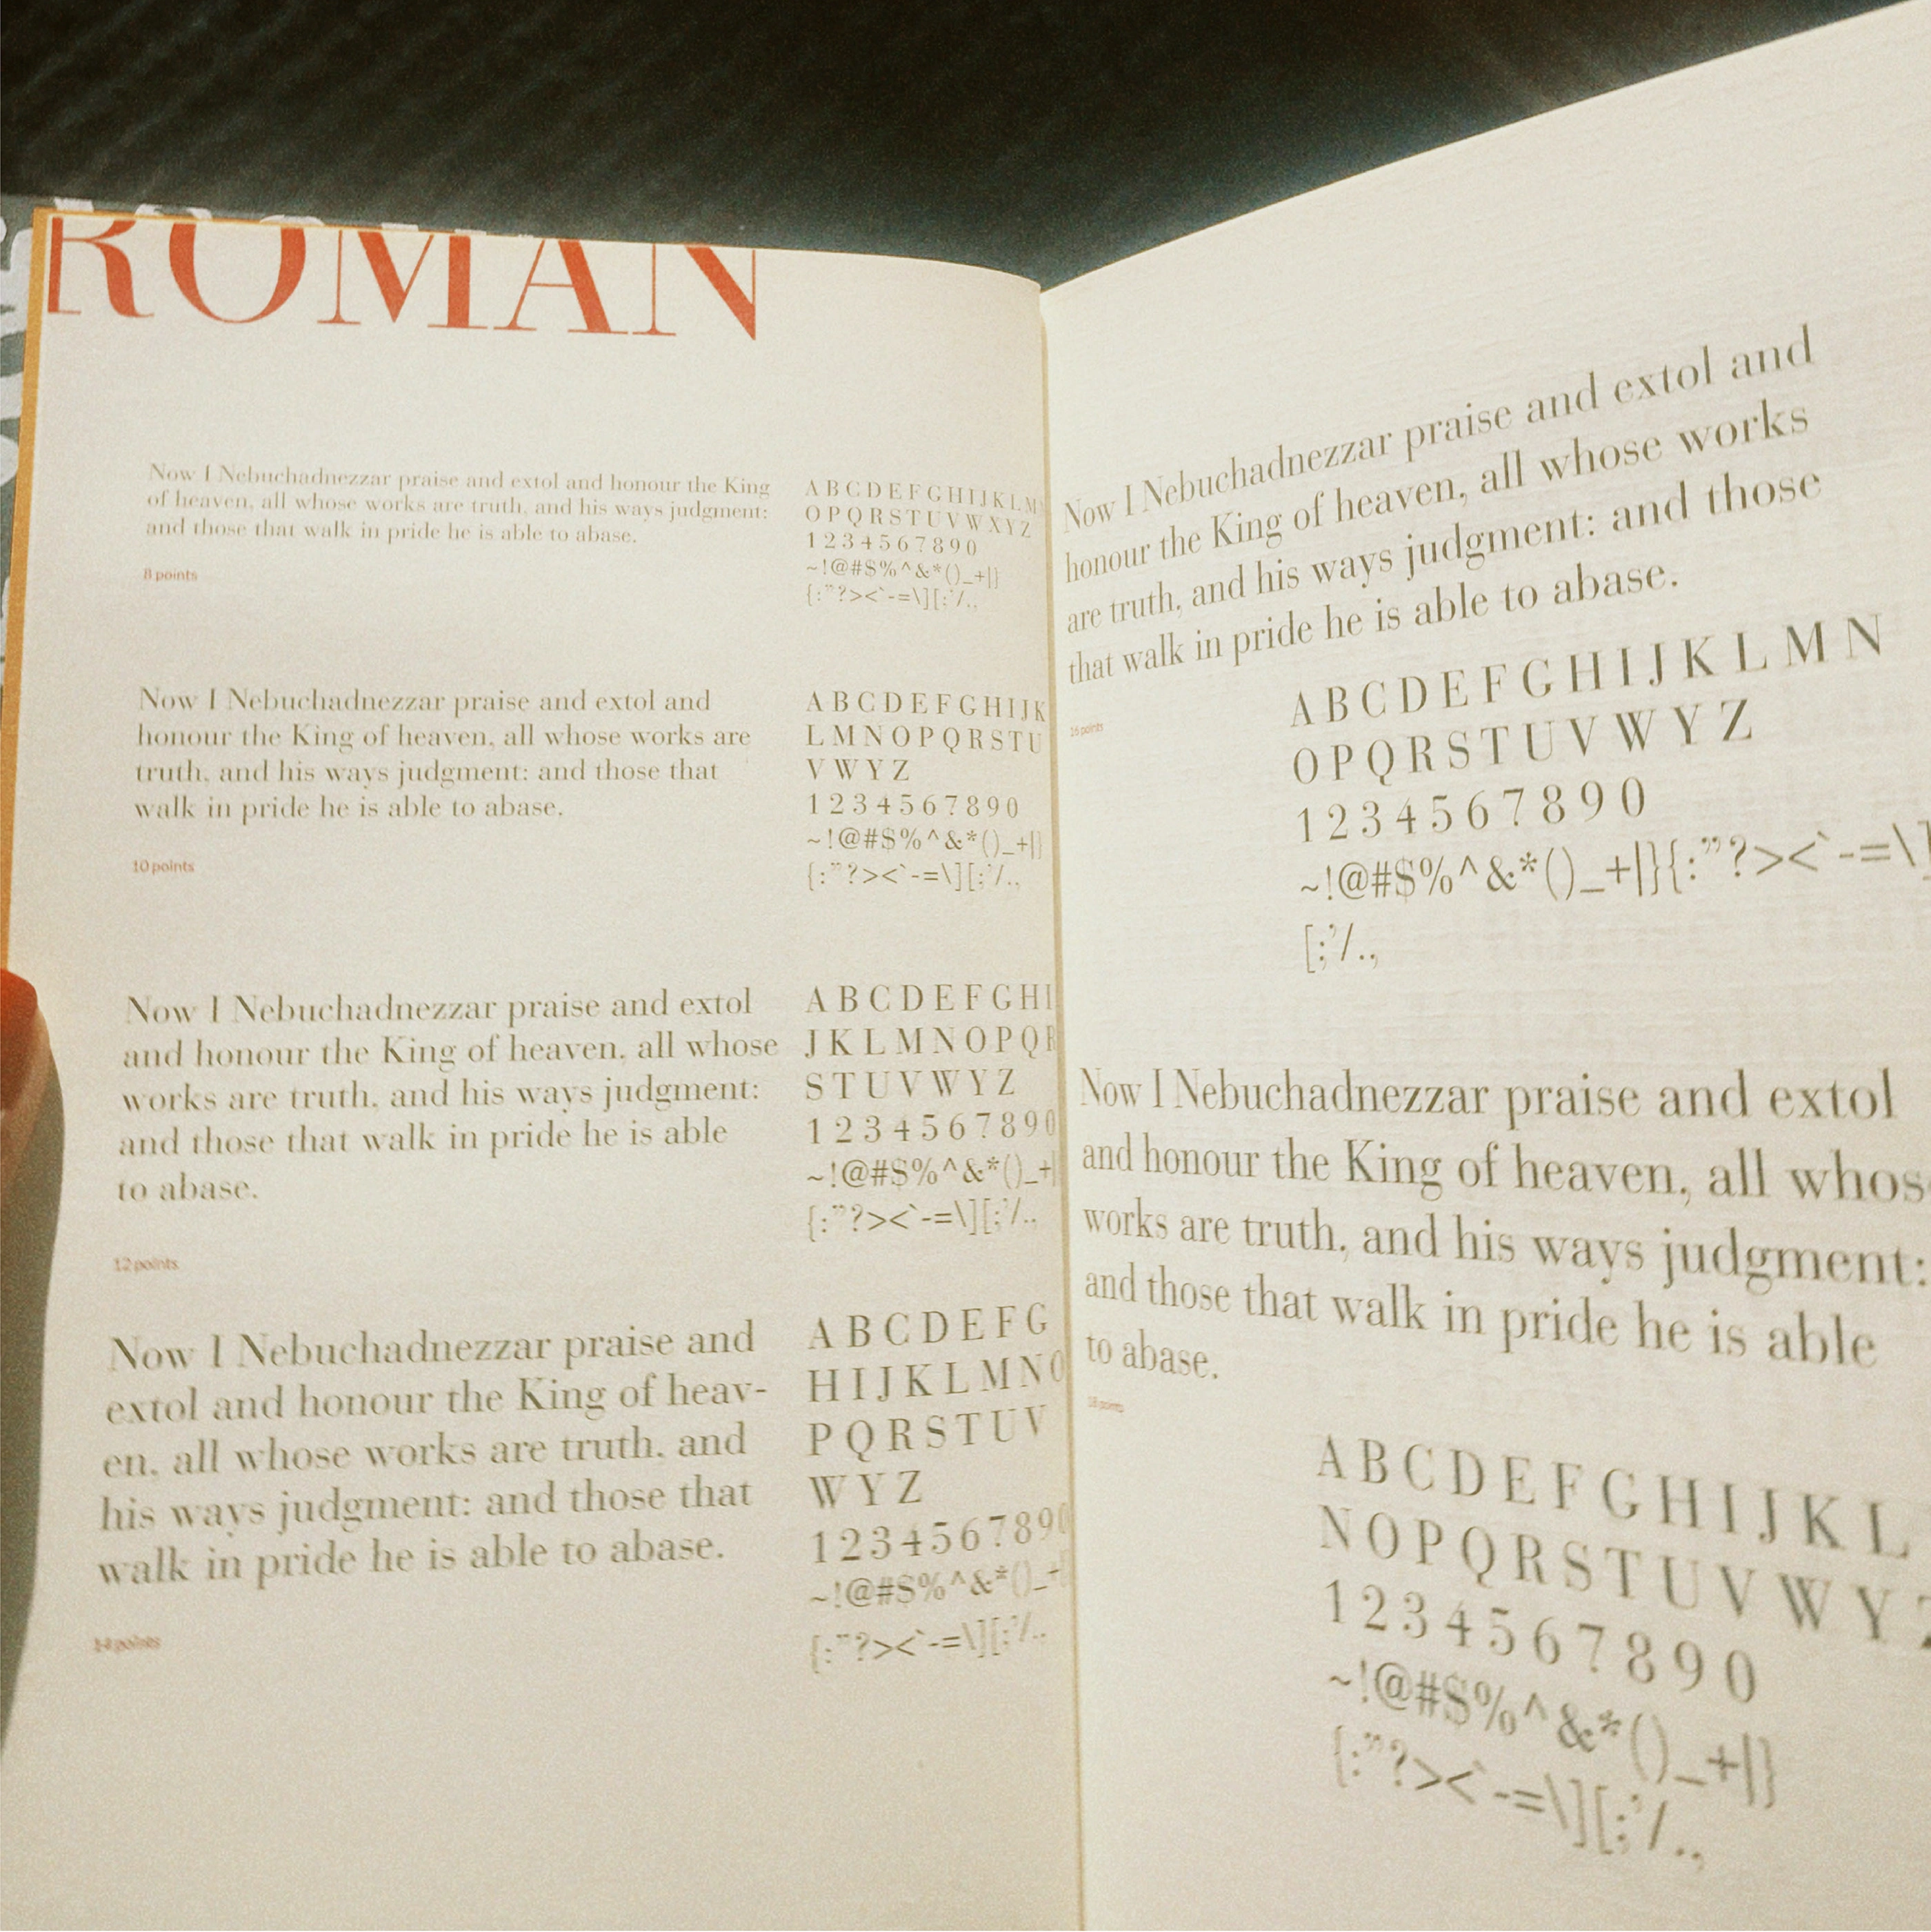 ROMAN
Now I Nebuchadnezzar praise and extol and honour the King
of heaven, all whose works are truth, and his ways judgment:
and those that walk in pride he is able to abase.
8 points
A B C D E F G H I J K L M
O P Q R S T U V W X Y Z
1 2 3 4 5 6 7 8 9 0
~!@#$%^&*()_+|}
{:”?><`-=\][;’/.,
Now I Nebuchadnezzar praise and extol and
honour the King of heaven, all whose works are
truth, and his ways judgment: and those that
walk in pride he is able to abase.
10 points
A B C D E F G H I J K
L M N O P Q R S T U
V W Y Z
1 2 3 4 5 6 7 8 9 0
~!@#$%^&*()_+|}
{:”?><`-=\][;’/.,
Now I Nebuchadnezzar praise and extol
and honour the King of heaven, all whose
works are truth, and his ways judgment:
and those that walk in pride he is able
to abase.
12 points
A B C D E F G H I
J K L M N O P Q R
S T U V W Y Z
1 2 3 4 5 6 7 8 9 0
~!@#$%^&*()_+|
{:”?><`-=\][;’/.,
Now I Nebuchadnezzar praise and
extol and honour the King of heav-
en, all whose works are truth, and
his ways judgment: and those that
walk in pride he is able to abase.
14 points
A B C D E F G
H I J K L M N O
P Q R S T U V
W Y Z
1 2 3 4 5 6 7 8 9 0
~!@#$%^&*()_+
{:”?><`-=\][;’/.,
Now I Nebuchadnezzar praise and extol and
honour the King of heaven, all whose works
are truth, and his ways judgment: and those
that walk in pride he is able to abase.
16 points
A B C D E F G H I J K L M N
O P Q R S T U V W Y Z
1 2 3 4 5 6 7 8 9 0
~!@#$%^&*()_+|}{:”?><`-=\]
[;’/.,
Now I Nebuchadnezzar praise and extol
and honour the King of heaven, all whos
works are truth, and his ways judgment:
and those that walk in pride he is able
to abase.
18 points
A B C D E F G H I J K L
N O P Q R S T U V W Y Z
1 2 3 4 5 6 7 8 9 0
~!@#$%^&*()_+|}
{:”?><`-=\][;’/.,